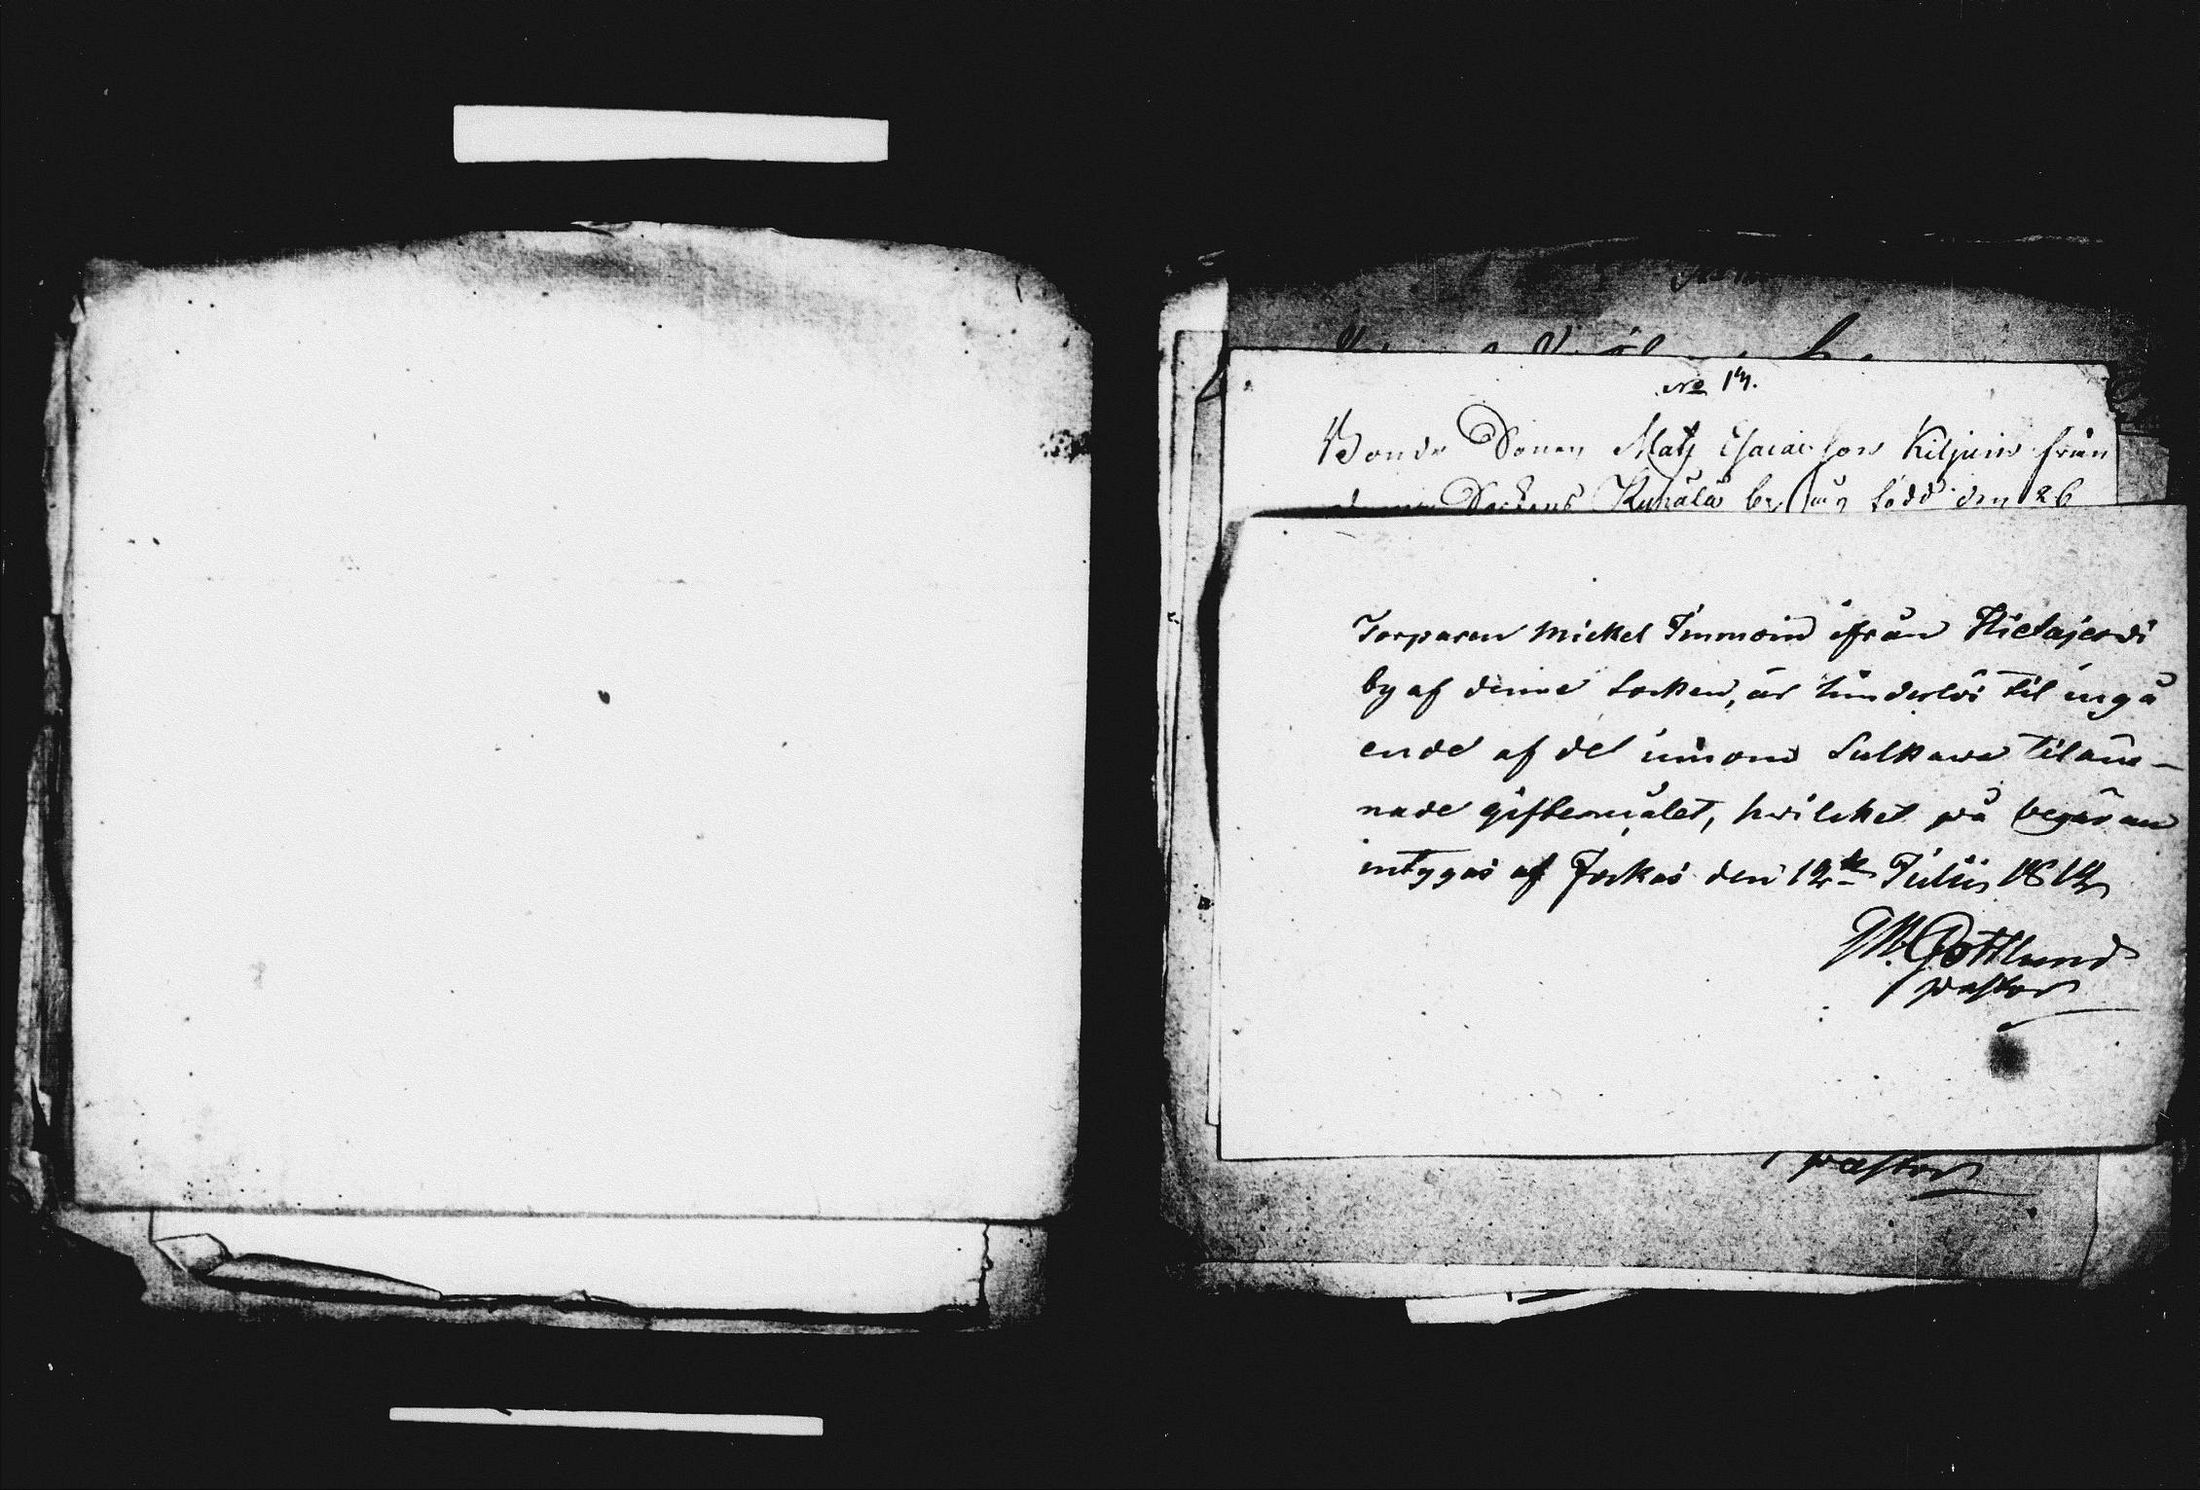 No 14.
Bonde Sonen Mats Esaiasson Kiljuin från
Sockens Kuhälä by född den 26
Torparen Mickel Immoin ifrån Hietajerwi
by af denne Socken, är hinderlös til ingå
ende af det innom Sulkawa tiläm-
nade giftermålet, hwilcket på begäran
intygas af Jockas den 12te Julii 1812
M. Gottlund
pastor
pastor